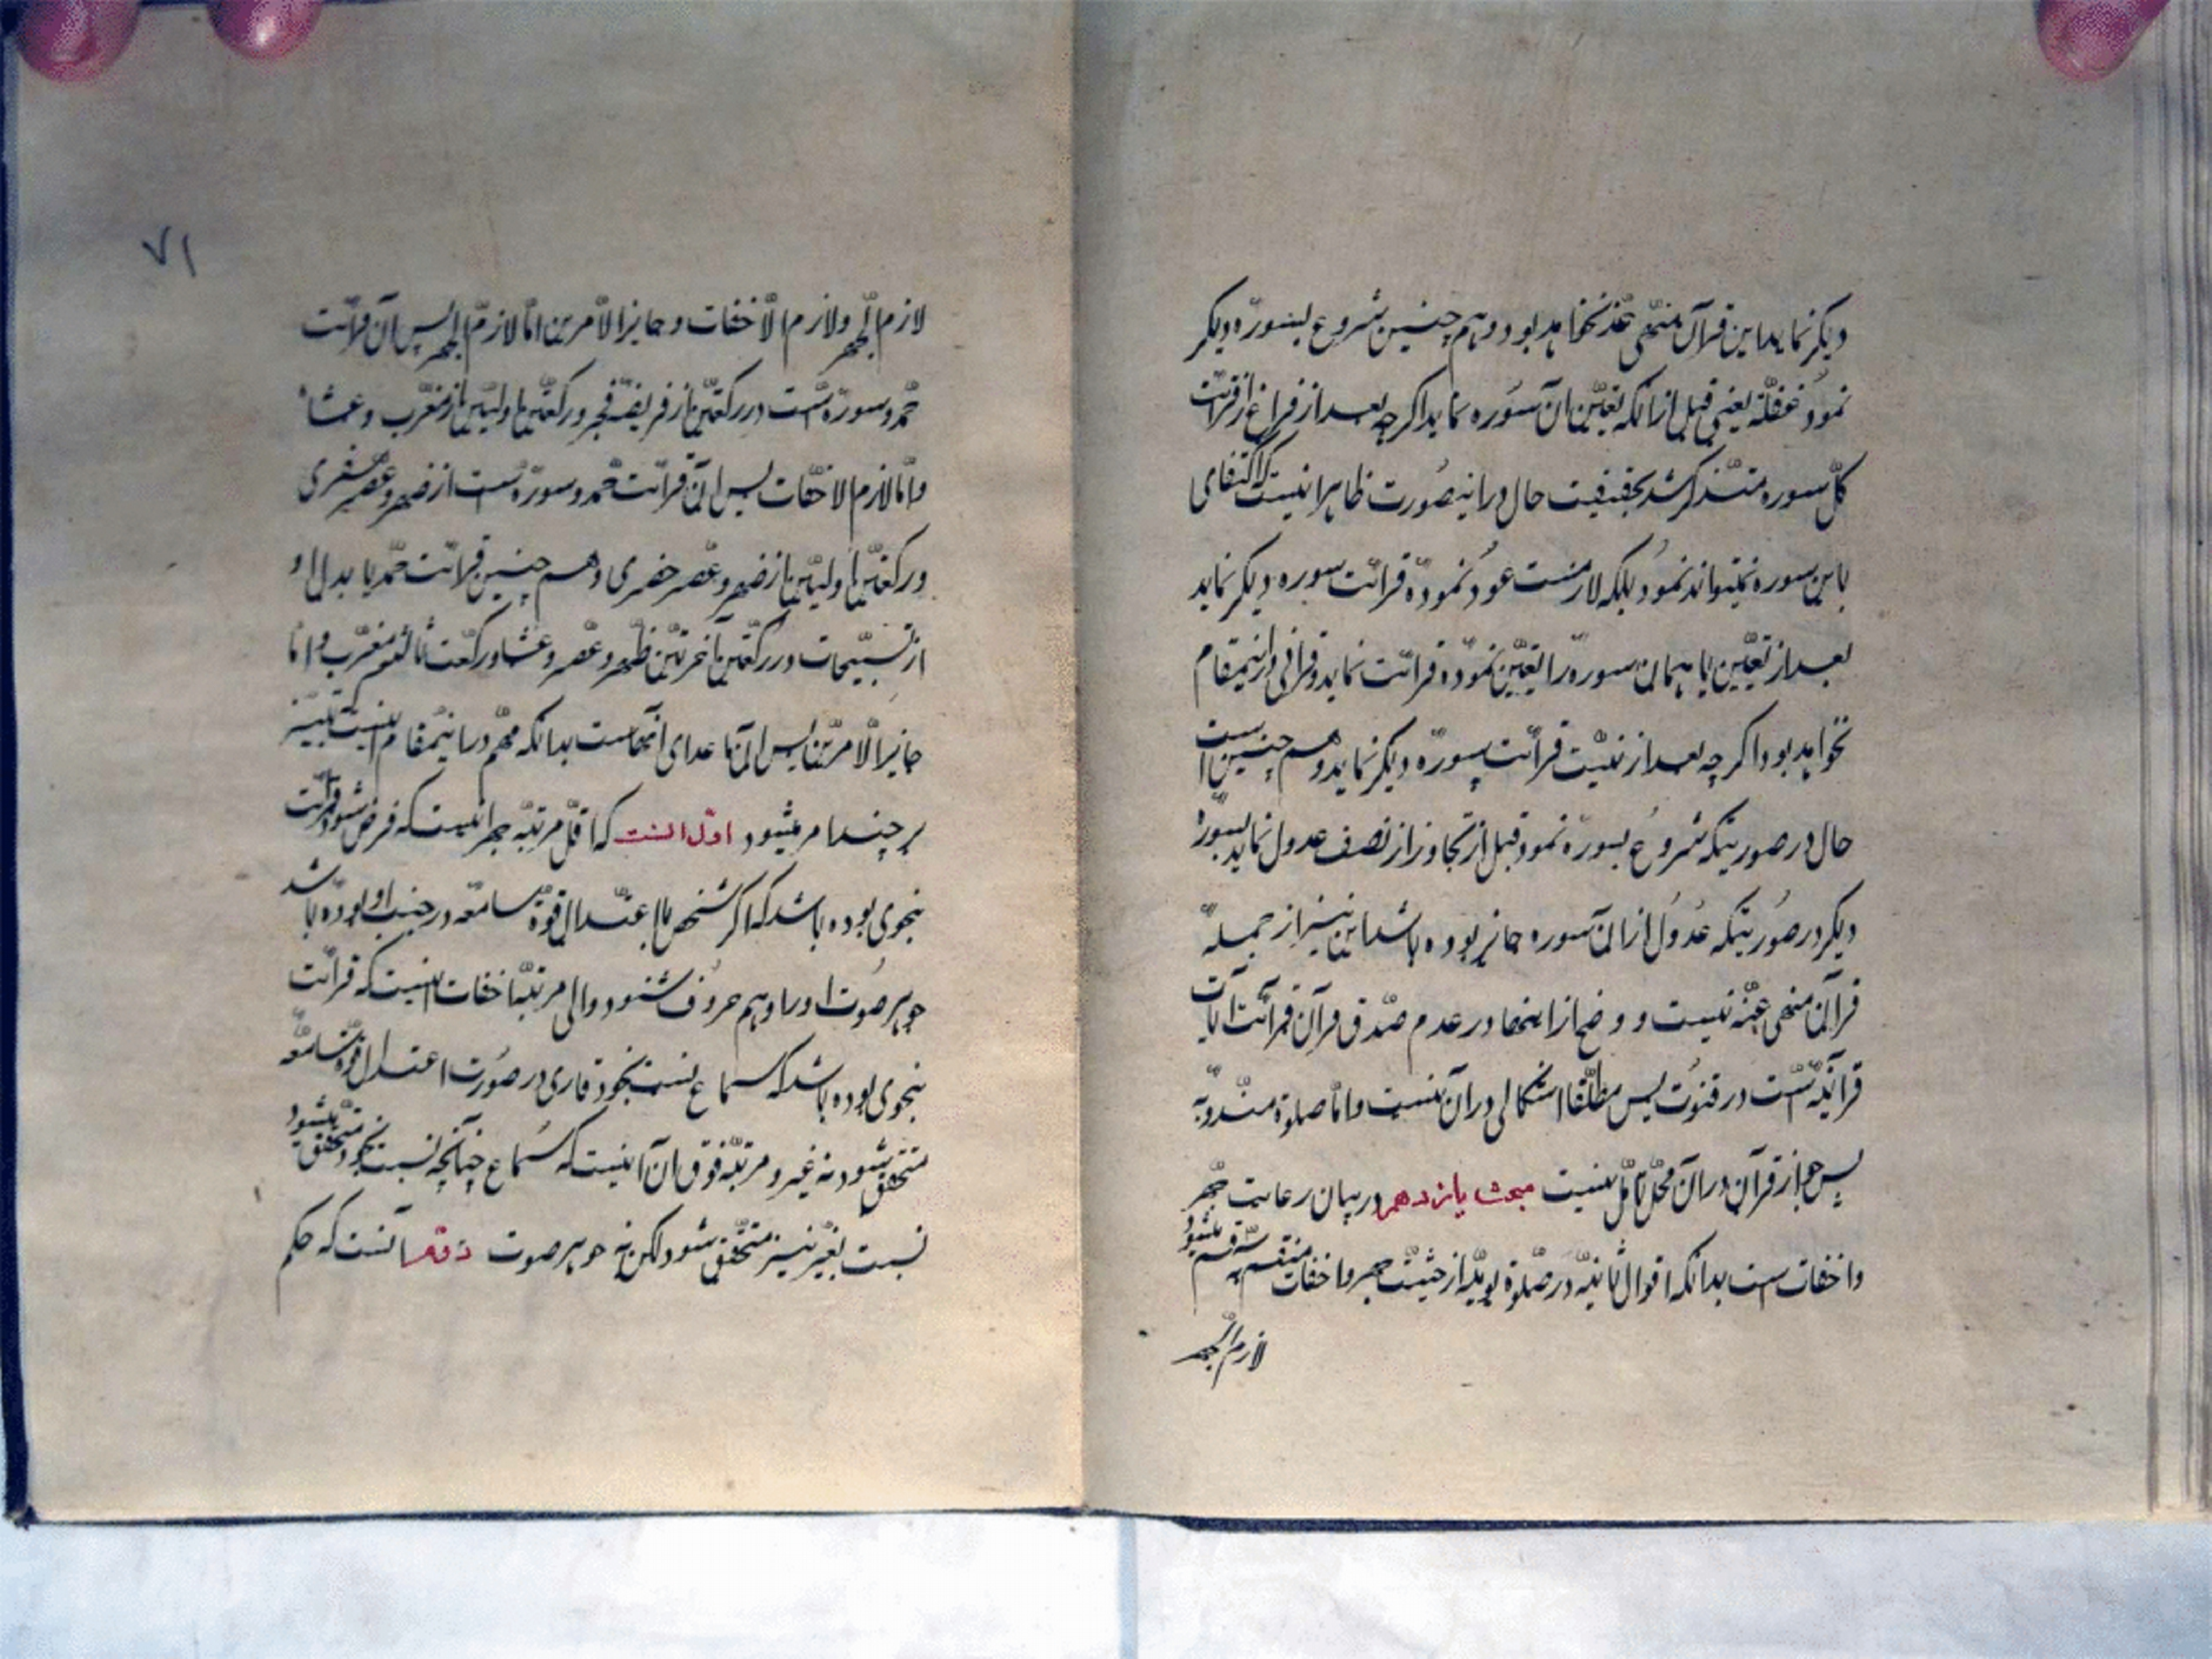 دیکر نماید این قرآن منهی عنه نخواهد بود و هم چنین شروع بسوره دیکر
نمود غفلة یعنی قبل از انکه تعیین ان سوره نماید اکر چه بعد از فراغ از قرائت
کل سوره متذکر شد بحقیقت حال در اینصورت ظاهرا نیست که اکتفای
باین سوره نمیتواند نمود بلکه لازمست عود نموده قرائت سوره دیکر نماید
بعد از تعیین یا همان سوره را تعیین نموده قرائت نماید و قرانی در اینمقام
نخواهد بود اکر چه بعد از نیت قرائت سوره دیکر نماید و هم چنین است
حال در صورتیکه شروع بسوره نمود قبل از تجاوز از نصف عدول نماید بسوره
دیکر در صورتیکه عدول از ان سوره جایز بوده باشد این نیز از جمله
قرآن منهی عنه نیست و وضح از اینها در عدم صدق قرآن قرائت آیات
قرآنیه است در قنوت پس مطلقا اشکالی در آن نیست و اما صلوة مندوبه
پس جواز قرآن در آن محل تامل نیست مبحث یازدهم در بیان رعایت جهر
و اخفات ست بدانکه اقوال ثانیه در صلوة یومیه از حیثیت جهر و اخفات منقسم بسه قسم میشود
لازم الجهر
۷۱
لازم الجهر و لازم الاخفات و جایز الامرین اما لازم الجهر پس ان قرائت
حمد و سوره است در رکعتین از فریضه فجر و رکعتین اولیین از مغرب و عشاء
و اما لازم الاخفات پس ان قرائت حمد و سوره است از ظهر و عصر سفری
و رکعتین اولیین از ظهر و عصر حضری و هم چنین قرائت حمد یا بدل او
از تسبیحات در رکعتین آخرتین ظهر و عصر و عشا و رکعت ثالثه مغرب و اما
جایز الامرین پس ان ما عدای آنهاست بدانکه مهم در اینمقام تنبیه
بر چند امر میشود اول انست که اقل مرتبه جهر انیست که فرض شود قرائت
بنحوی بوده باشد که اکر شخص با اعتدال قوه سامعه در جنب او بوده باشد
جوهر صوت او را و هم حروف شنود و الی مرتبه اخفات انیست که قرائت
بنحوی بوده باشد که سماع نسبت بخود قاری در صورت اعتدال قوه سامعه
متحقق شود نه غیر و مرتبه فوق ان آنیست که سماع چنانچه نسبت بخود متحقق میشود
نسبت بغیر نیز متحقق شود لکن نه جوهر صوت دوم آنست که حکم